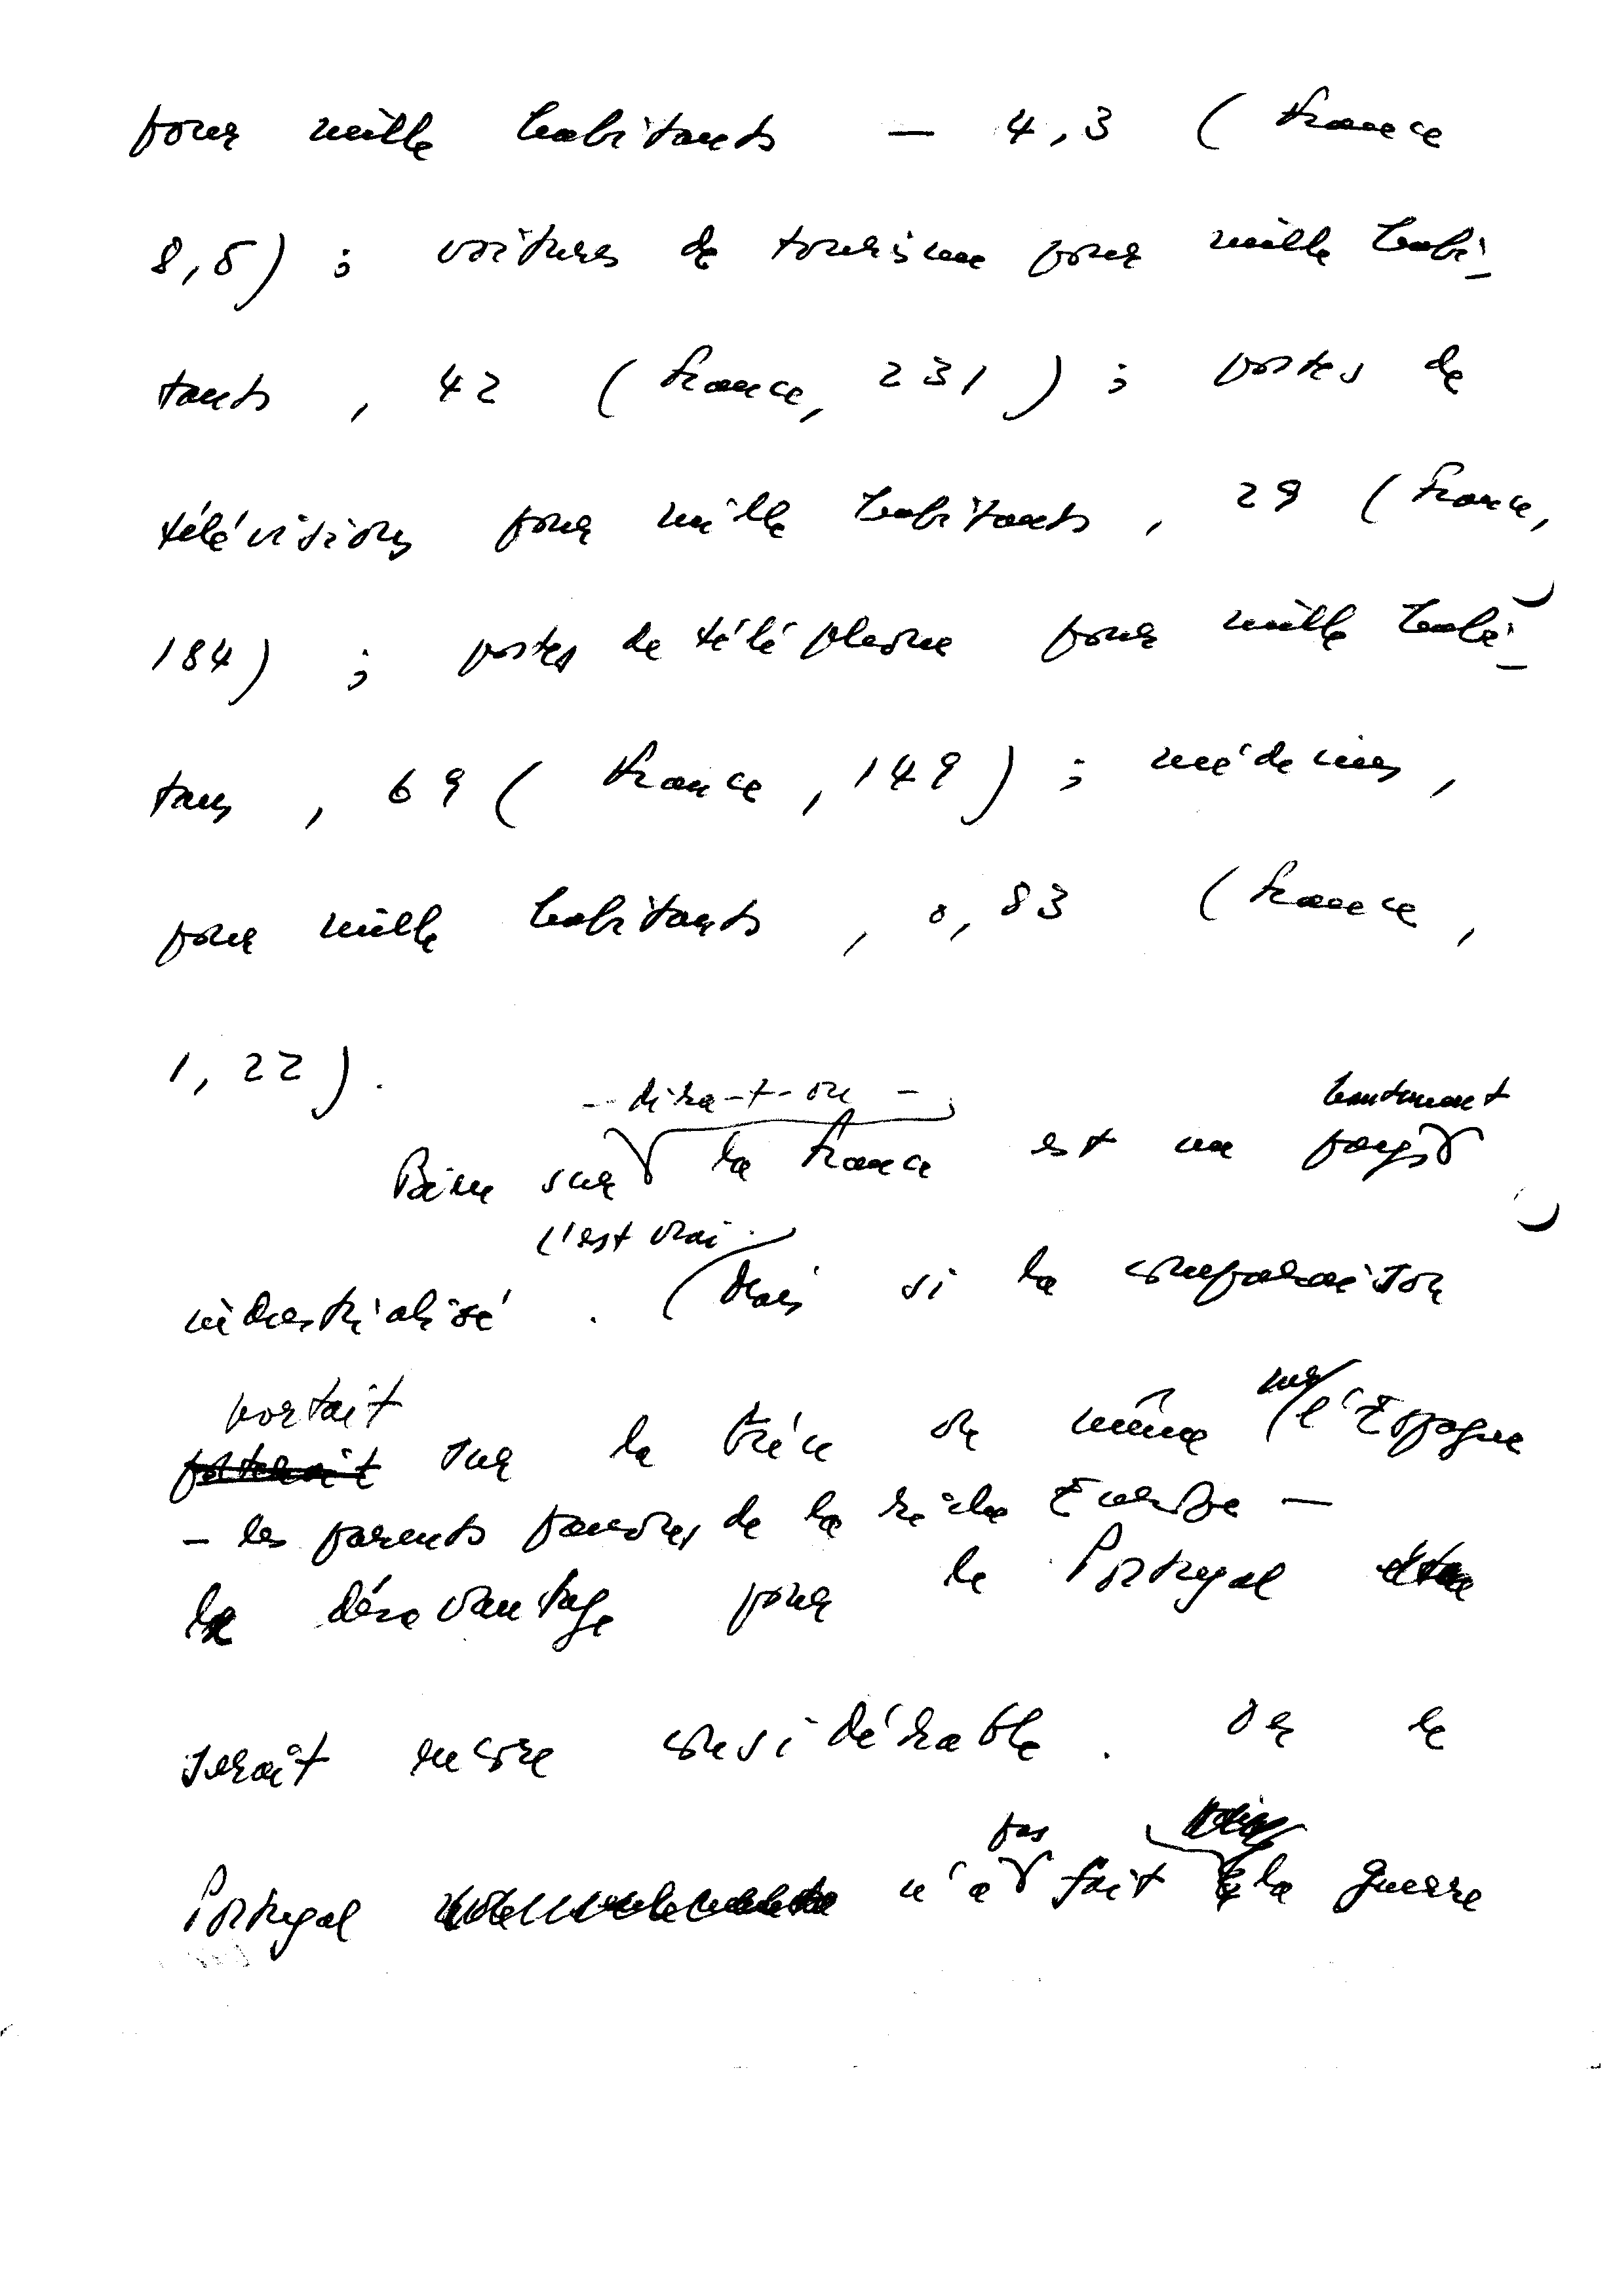 pour mille habitants — 4,3 (France
8,5) ; voitures de tourisme pour mille habi-
tants , 42 (France, 231) ; postes de
télévision pour mille habitants , 29 (France,
184) ; postes de téléphone pour mille habi-
tans , 69 (France , 149) ; médecins ,
pour mille habitants , 0,83 (France ,
1,22).
- dira-t-on - hautement
Bien sur la France est un pays
c'est vrai.
industrialisé . Mais si la comparaison
portait sur
porterait sur la Grèce ou même l'Espagne
- les parents pauvres de la riche Europe —
le désavantage pour le Portugal
serait encore considérable . Or le
pas
Portugal n'a fait la guerre